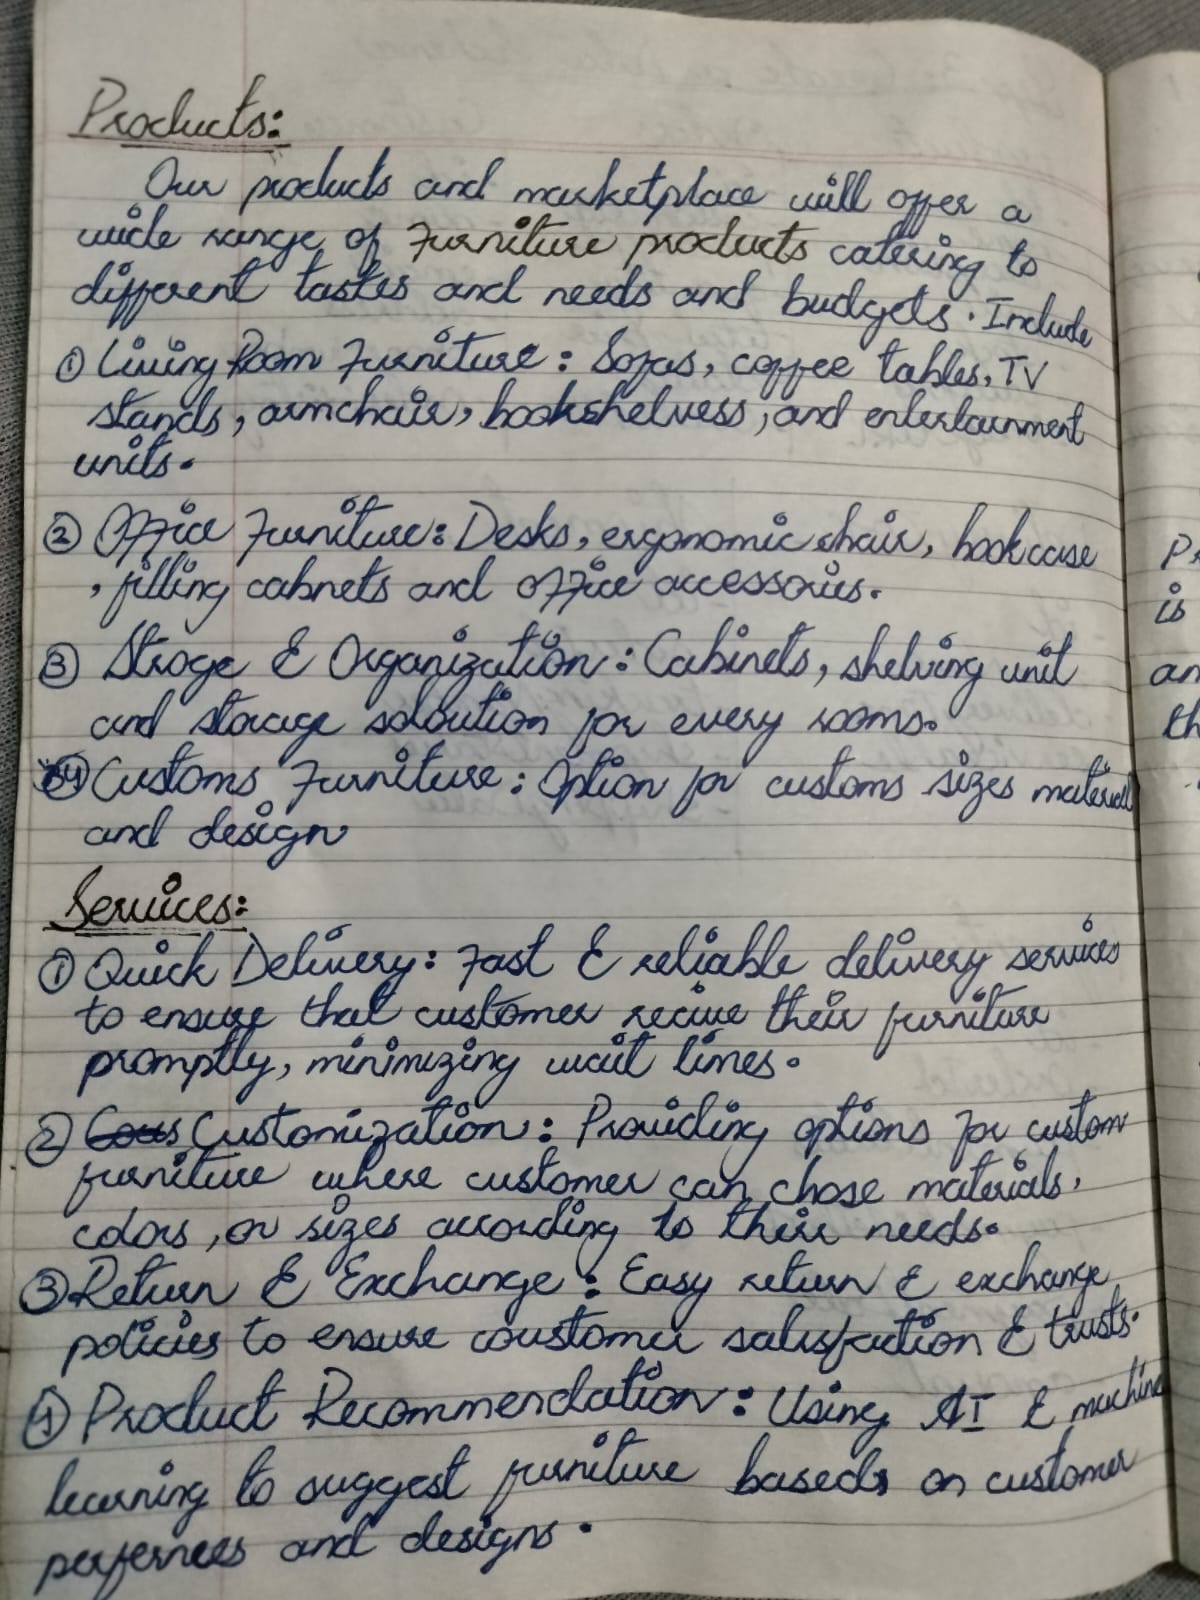 Products:
Our products and marketplace will offer a
wide range of Furniture products catering to
different tastes and needs and budgets. Include
① Living Room Furniture: Sofas, coffee tables, TV
stands, armchair, bookshelvess, and entertainment
units.
② Office Furniture: Desks, ergonomic chair, bookcase
, filling cabnets and office accessories.
③ Stroge & Organization: Cabinets, shelving unit
and storage soloution for every rooms.
④ Customs Furniture: Option for customs sizes material
and design
Services:
① Quick Delivery: Fast & reliable delivery services
to ensure that customer recive their furniture
promptly, minimizing wait times.
② Customization: Providing options for custom
furniture where customer can chose materials,
colors, or sizes according to their needs.
③ Return & Exchange: Easy return & exchange
policies to ensure coustomer satisfaction & trusts.
④ Product Recommendation: Using AI & machine
learning to suggest furniture baseds on customer
perfernees and designs.
Pr
is
an
th